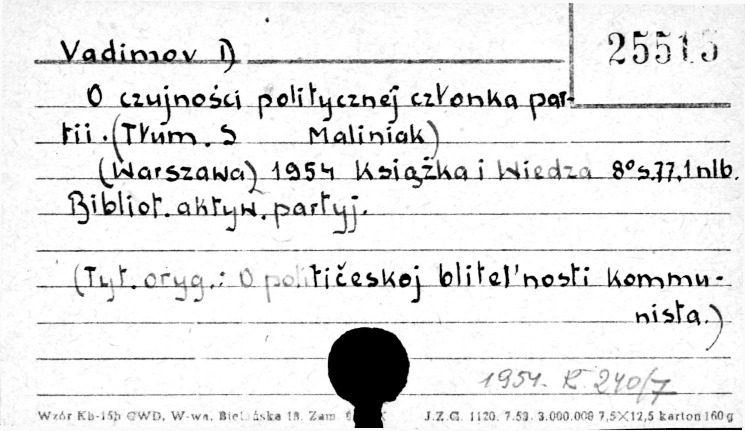 Vadimov D
25515
O czujności politycznej członka par-
tii. (Tłum. S Maliniak)
(Warszawa) 1954 Książka i Wiedza 8° s.77,1 nlb.
Bibliot. aktyw. partyj.
(Tyt. oryg.: O političeskoj blitel'nosti kommu-
nista.)
1954. R. 240/7
Wzór Kb-15b GWD, W-wa, Bielańska 18. Zam. J.Z.G. 1120. 7.53. 3.000.000 7,5×12,5 karton 160 g